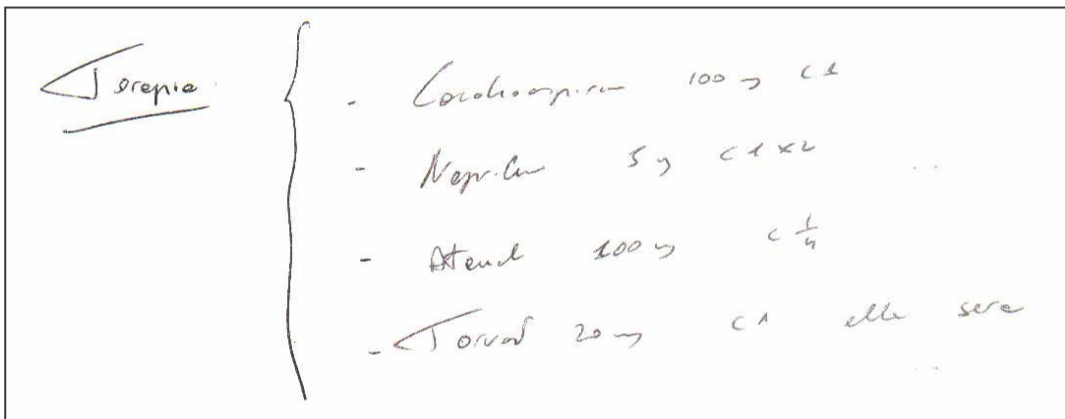 Terapia
- Cardioaspirin 100 mg c 1
- Naprilene 5 mg c 1 x 2
- Atenol 100 mg c 1/4
- Torvast 20 mg c 1 alla sera